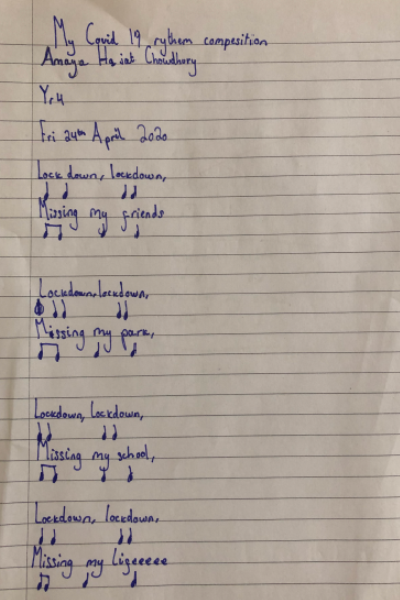 My Covid 19 rythem compesition
Amaya Hajat Chowdhury
Yr4
Fri 24th April 2020
Lockdown, lockdown,
Missing my friends
Lockdown, lockdown,
Missing my park,
Lockdown, lockdown,
Missing my school,
Lockdown, lockdown,
Missing my Lifeeeee